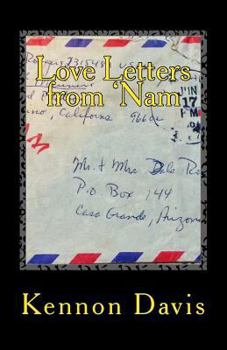 Love Letters
from 'Nam
California 96602
JUN
17
PM
Mr. + Mrs Dale
P.O. Box 144
Casa Grande, Arizona
Kennon Davis